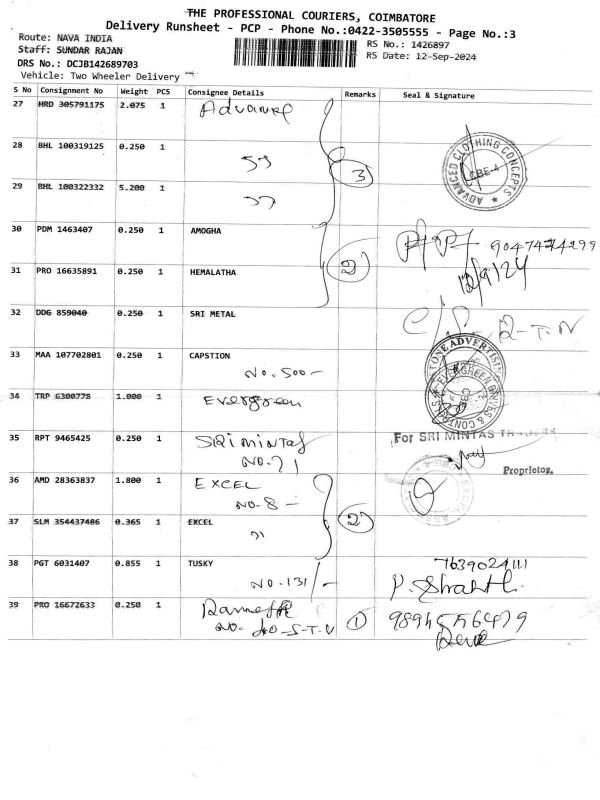 THE PROFESSIONAL COURIERS, COIMBATORE
Delivery Runsheet - PCP - Phone No.:0422-3505555 - Page No.:3
Route: NAVA INDIA
RS No.: 1426897
Staff: SUNDAR RAJAN
RS Date: 12-Sep-2024
DRS No.: DCJB142689703
Vehicle: Two Wheeler Delivery
S No Consignment No Weight PCS Consignee Details Remarks Seal & Signature
27 HRD 305791175 2.075 1
28 BHL 100319125 0.250 1 ,, 3
ADVANCED CLOTHING CONCEPTS CBE-4
29 BHL 100322332 5.200 1 ,,
30 PDM 1463407 0.250 1 AMOGHA
9047474299
31 PRO 16635891 0.250 1 HEMALATHA 2 12/9/24
32 DDG 859040 0.250 1 SRI METAL
33 MAA 107702801 0.250 1 CAPSTION
NO. 500 -
34 TRP 6300778 1.000 1 Evergreen
35 RPT 9465425 0.250 1 SRIMINTAS
For SRI MINTAS TRADERS
NO-71
Proprietor
36 AMD 28363837 1.800 1 EXCEL
NO-8 -
37 SLM 354437486 0.365 1 EXCEL 2
,,
38 PGT 6031407 0.855 1 TUSKY
7639024111
NO-131/-
39 PRO 16672633 0.250 1 1
NO- 40-S-T-V